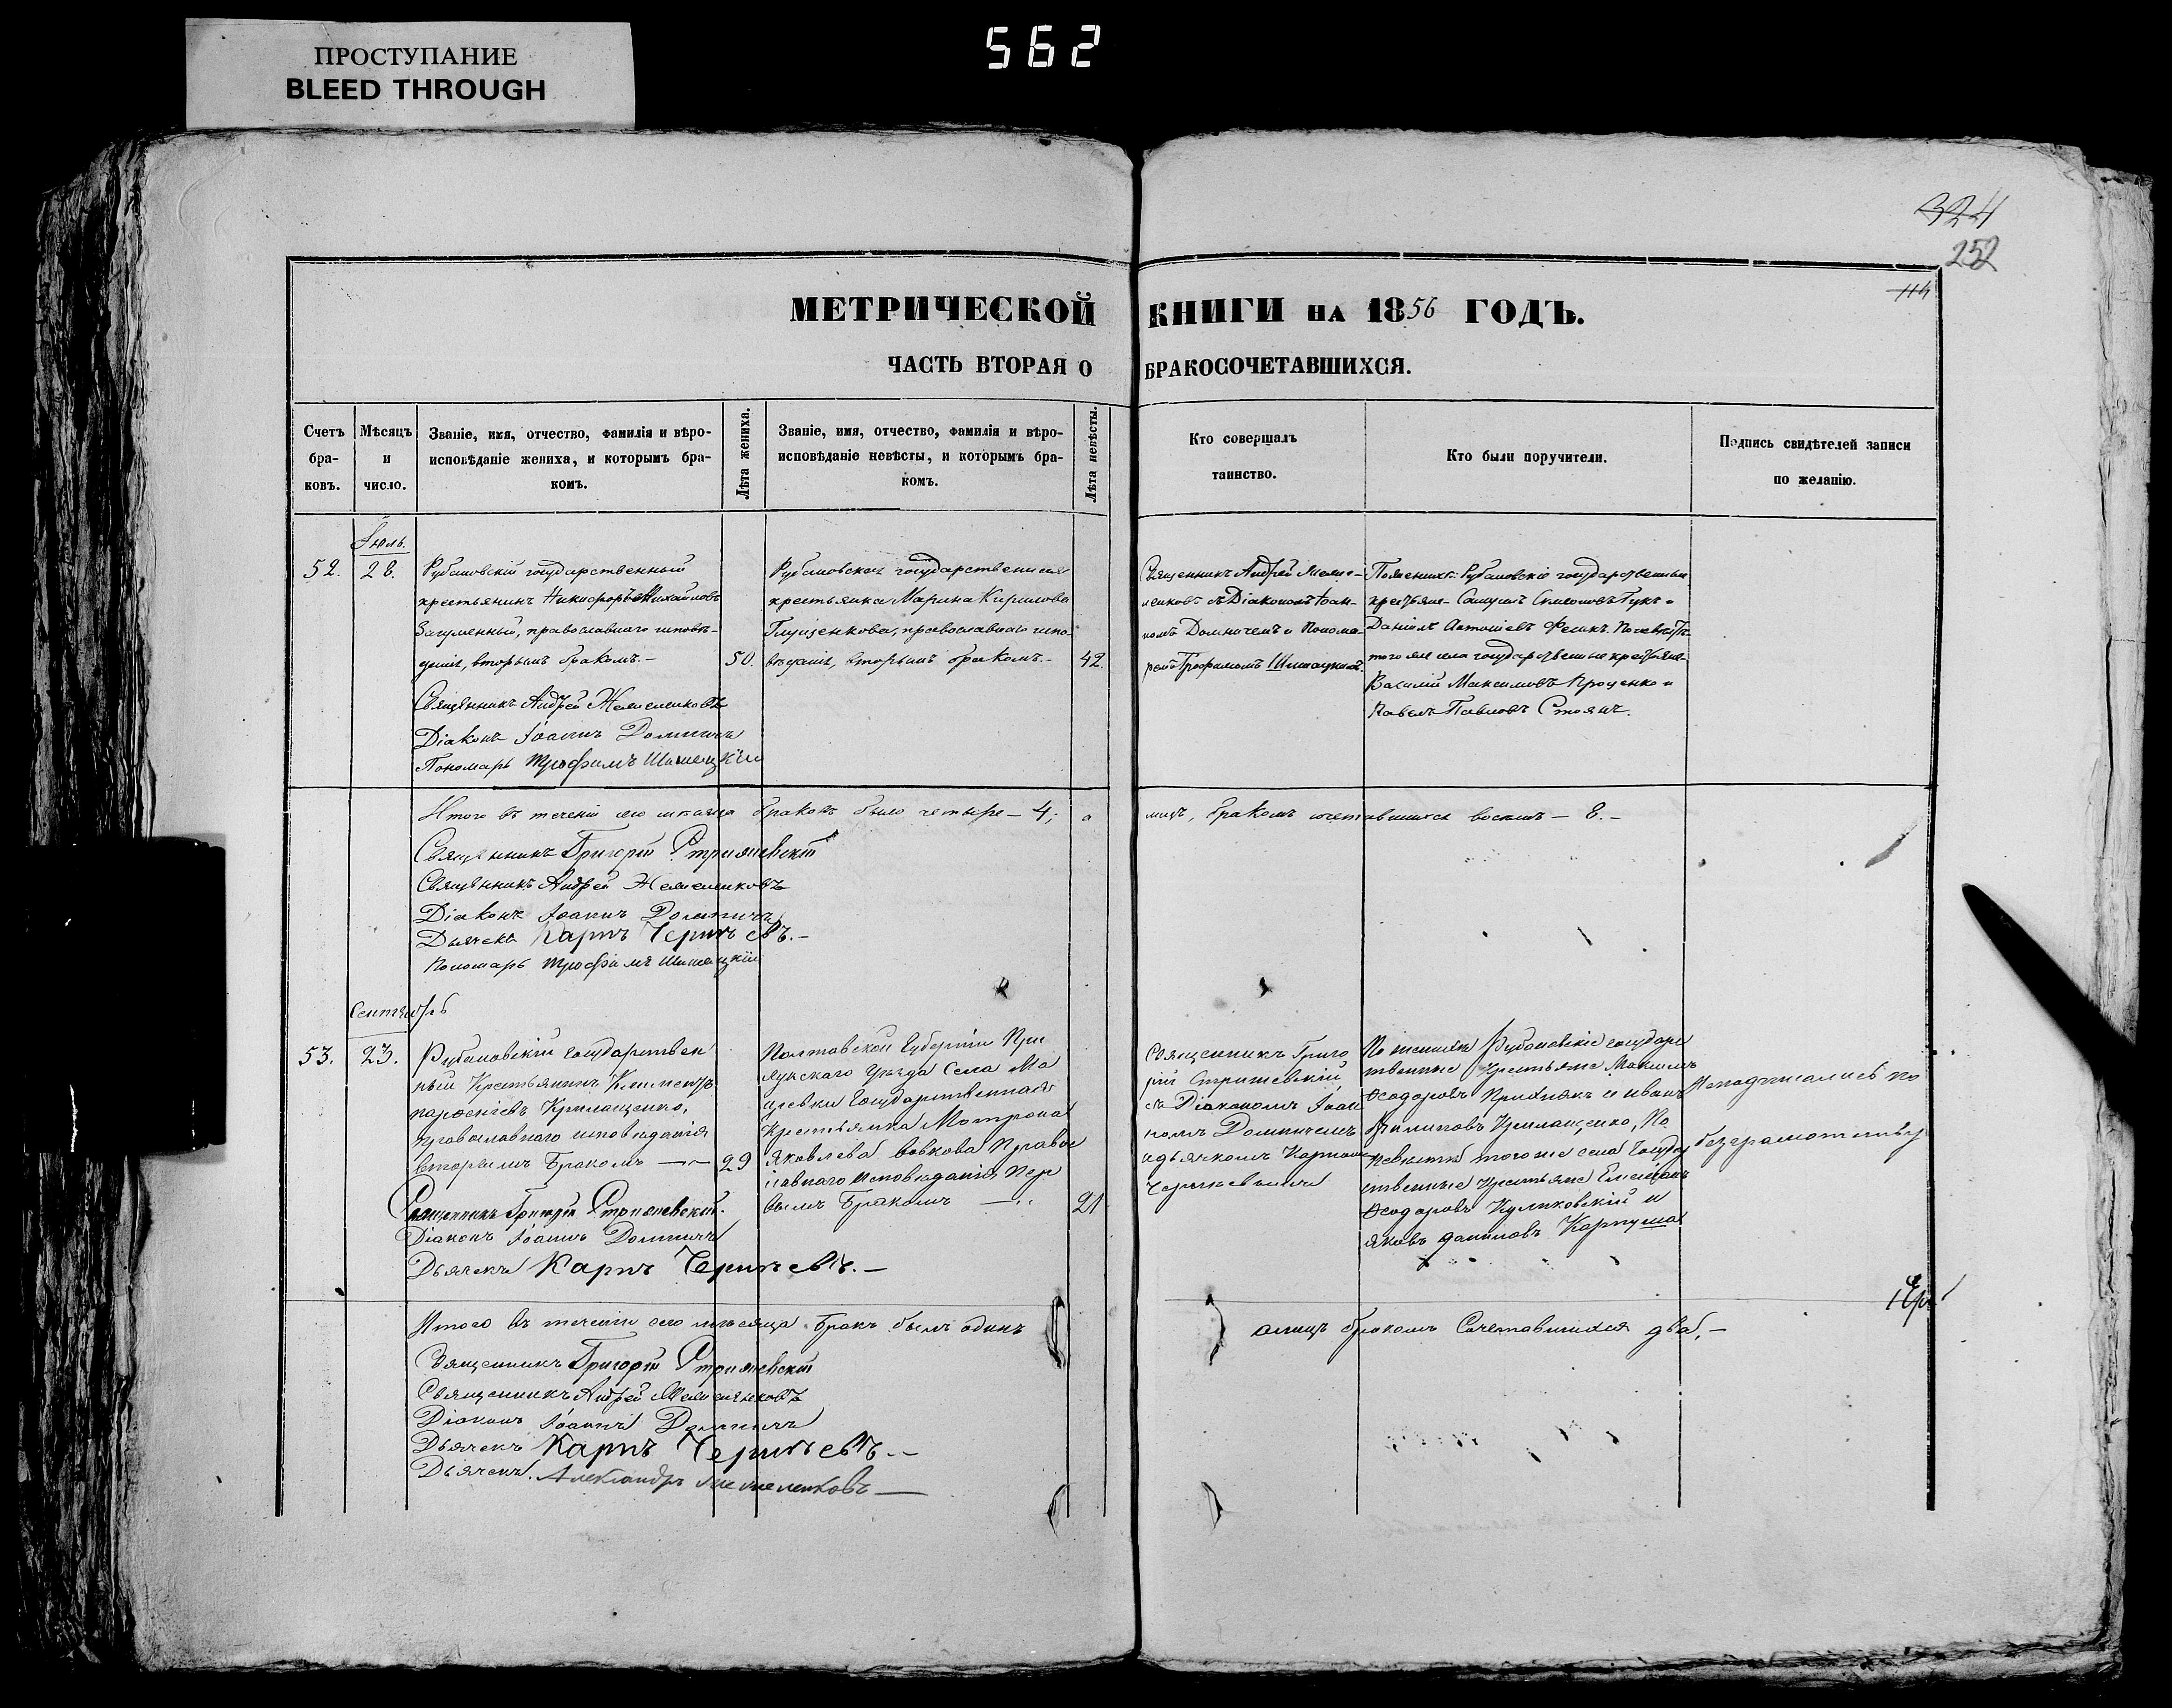 ПРОСТУПАНИЕ
BLEED THROUGH
562
324
252
114
МЕТРИЧЕСКОЙ КНИГИ НА 1856 ГОДЪ.
ЧАСТЬ ВТОРАЯ О БРАКОСОЧЕТАВШИХСЯ.
Счетъ бра-ковъ.
Мѣсяцъ и число.
Званіе, имя, отчество, фамилія и вѣро-
исповѣданіе жениха, и которымъ бра-
комъ.
Лѣта жениха.
Званіе, имя, отчество, фамилія и вѣро-
исповѣданіе невѣсты, и которымъ бра-
комъ.
Лѣта невѣсты.
Кто совершалъ
таинство.
Кто были поручители.
Подпись свидѣтелей записи
по желанію.
Іюль.
52. 28.
Рубановскій государственный
крестьянинъ Никифоръ Михайловъ
Загуменный, православнаго исповѣ-
данія, вторымъ бракомъ.- 50.
Священникъ Андрей
Діаконъ Іоаннъ Долиничъ
Пономарь Трофимъ
Рубановская государственная
крестьянка Марина Кирилова
Глущенкова, православнаго испо-
вѣданія, вторымъ бракомъ.- 42.
Священникъ Андрей
съ Діакономъ Іоан-
номъ и Понома-
ремъ Трофимомъ
По женихѣ: Рубановскіе государственные
крестьяне
Даніилъ По невѣстѣ
того же села государственные крестьяне
Василій Максимовъ Проценко и
Павелъ Павловъ Стоянъ.
Итого въ теченіи сего мѣсяца браковъ было четыре - 4; а
лицъ, бракомъ сочетавшихся восемь - 8.-
Священникъ Григорій Стрижевскій
Священникъ Андрей
Діаконъ Іоаннъ
Дьячекъ Карпъ
Пономарь Трофимъ
Сентябрь
53. 23.
Рубановскій государствен
ный Крестьянинъ Климентъ
парфеніевъ Крилащенко,
православнаго исповѣданія
вторымъ бракомъ 29
Священникъ Григорій Стрижевскій.
Діаконъ Іоаннъ
Дьячекъ Карпъ
Полтавской Губерніи При
лукскаго уѣзда Села Ма
цѣевки Государственная
Крестьянка Мотрона
Яковлева Вовкова Право
славнаго исповѣданія Пер
вымъ бракомъ 21
Священникъ Григо
рій Стрижевскій
съ Діакономъ Іоан
номъ
и дьячкомъ Карпомъ
По женихѣ Рубановскіе государ
ственные Крестьяне Максимъ
Ѳеодоровъ и иванъ
Филиповъ Крилащенко, По
невѣстѣ того же села Государ
ственные крестьяне
Ѳеодоровъ Куликовскій и
яковъ даниловъ Карпуша
Неподписались по
безграмотству
Итого въ теченіи сего мѣсяца бракъ былъ одинъ
а лицъ бракомъ Сочетавшихся два,-
Священникъ Григорій Стрижевскій
Священникъ Андрей
Діаконъ Іоаннъ
Дьячекъ Карпъ
Дьячекъ Александръ